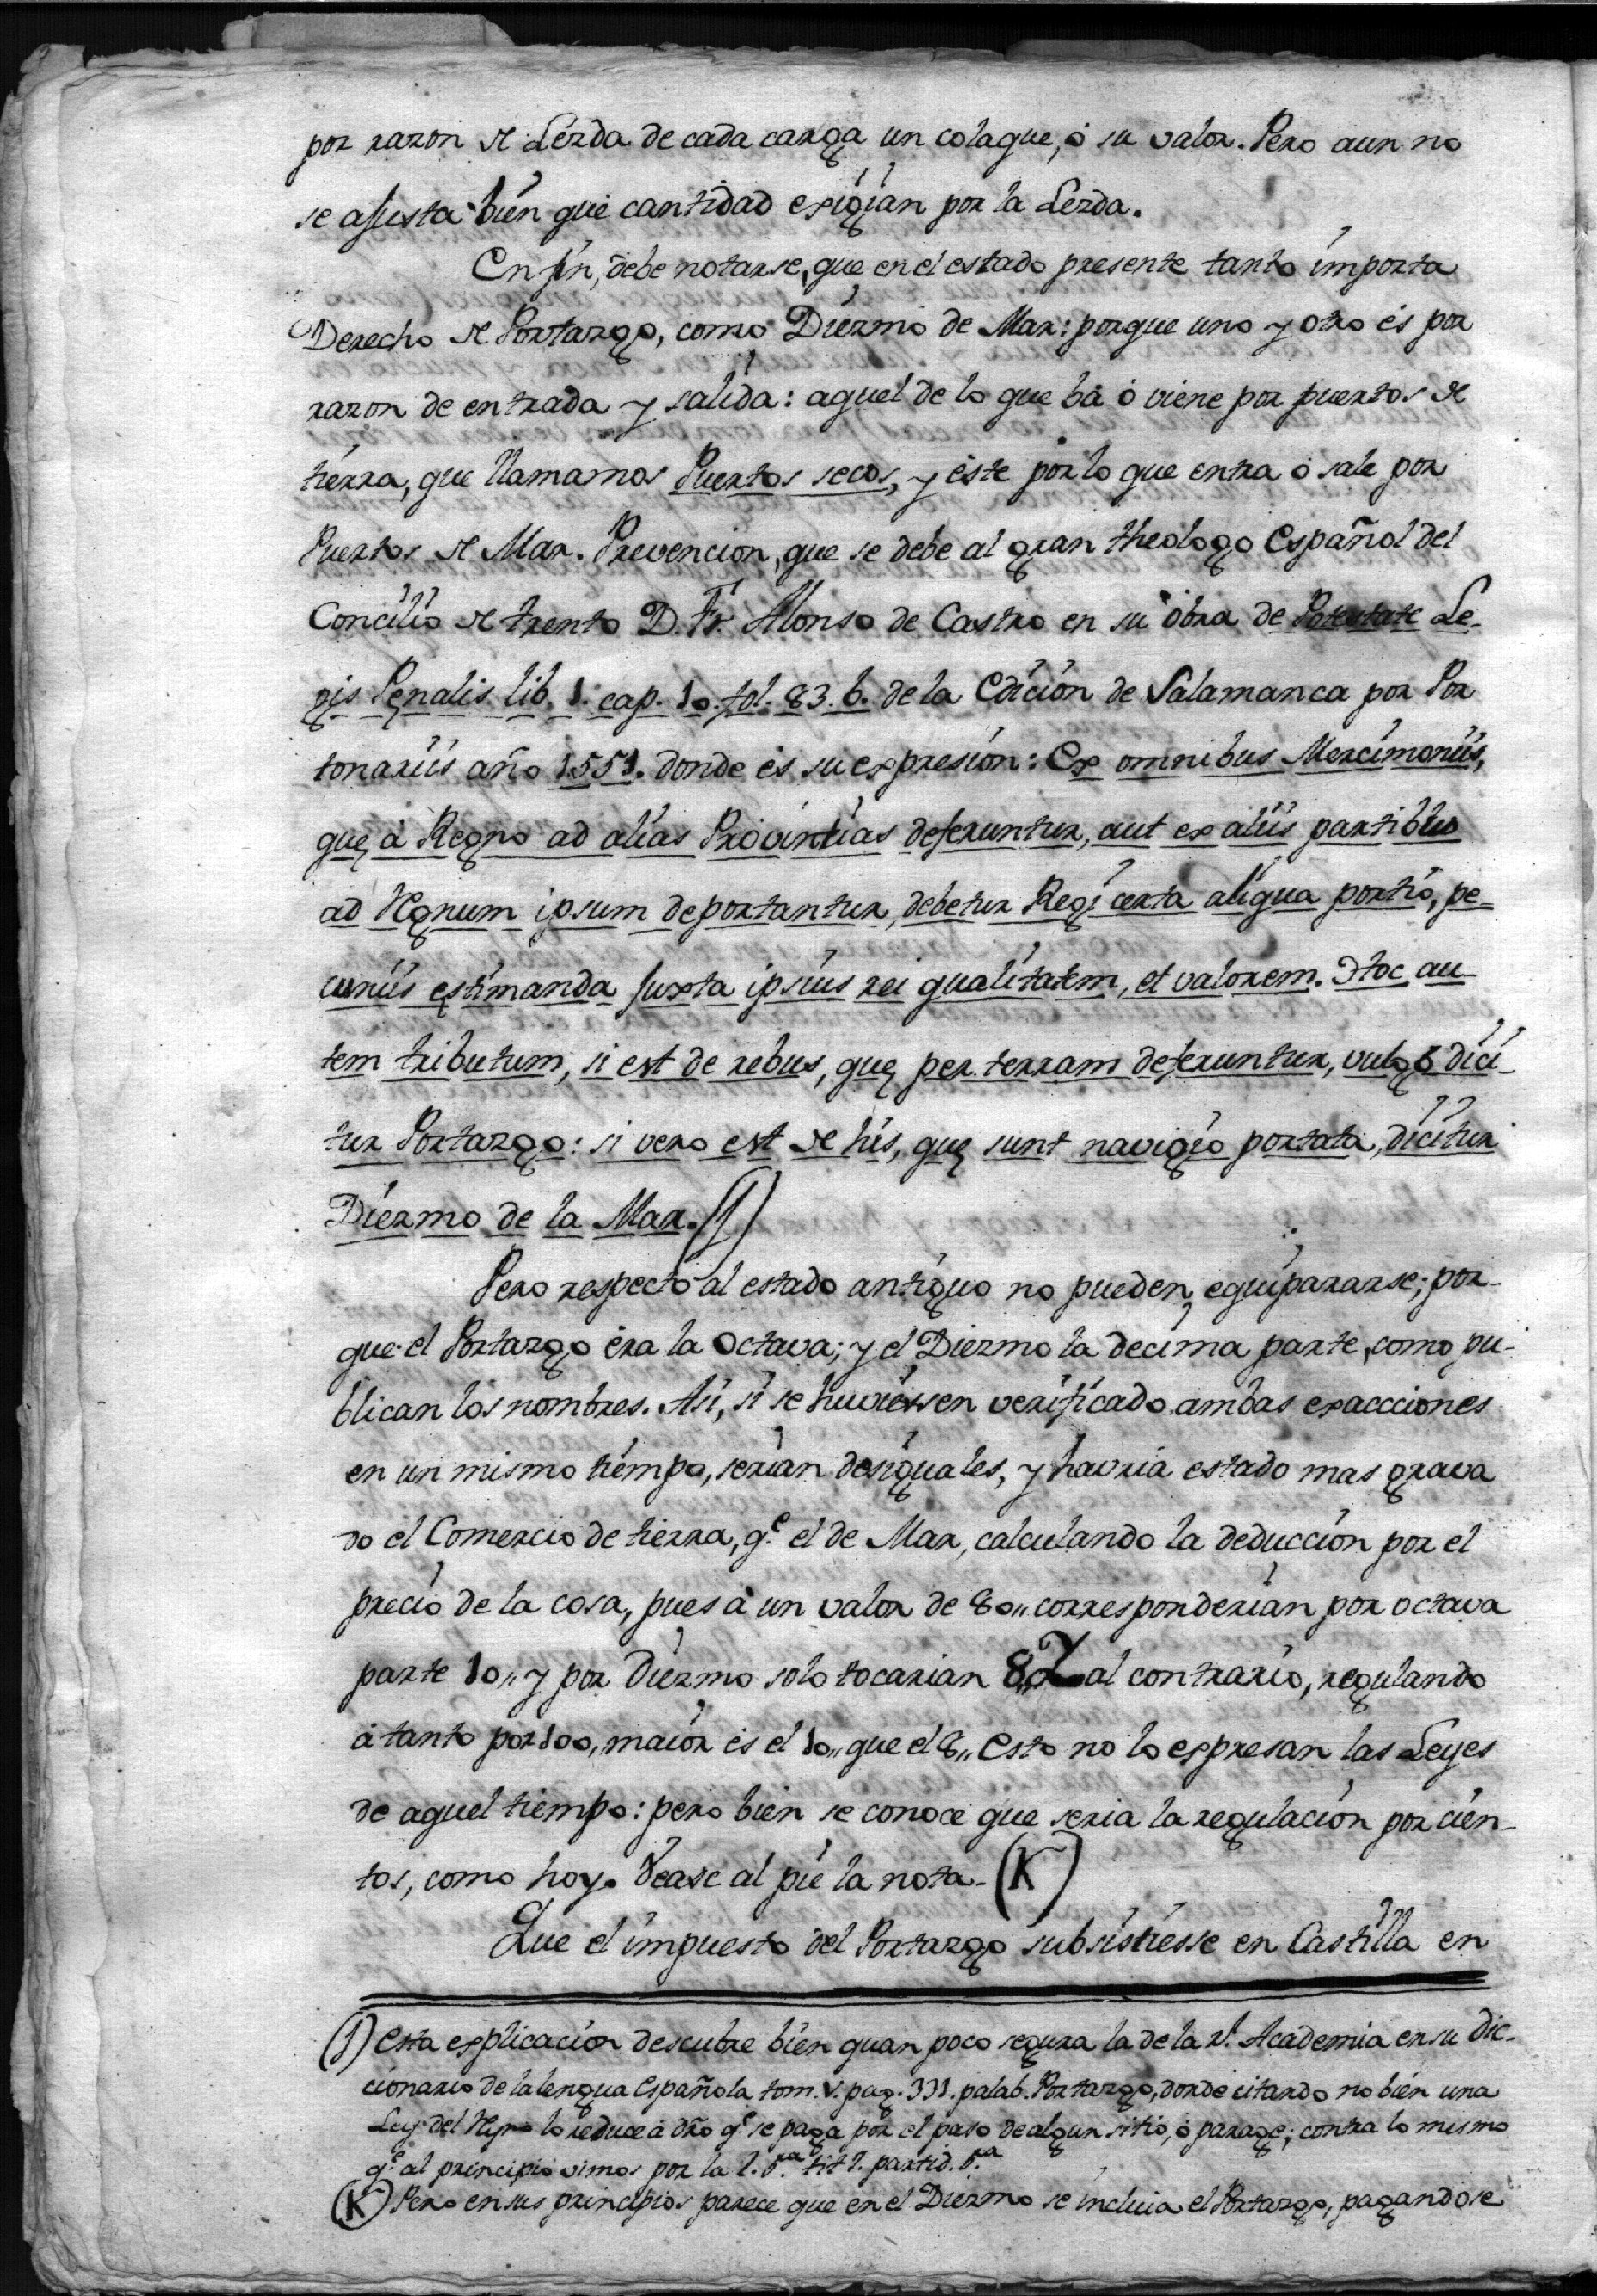 por razon de Lezda de cada carga un colague, ó su valor. Pero aun no
se ajusta bien que cantidad exigian por la Lezda.
En fin, debe notarse, que en el estado presente tanto importa
Derecho de Portazgo, como Diezmo de Mar: porque uno y otro és por
razon de entrada y salida: aquel de lo que bá ó viene por puertos de
tierra, que llamamos Puertos secos, y éste por lo que entra ó sale por
Puertos de Mar. Prevencion, que se debe al gran theologo Español del
Concilio de trento D. Fr. Alonso de Castro en su obra de Potestate Le-
gis Penalis lib. 1. cap. 10. fol. 83. b. de la Edición de Salamanca por Por
tonariis año 1551. donde és su expresión: Ex omnibus Mercimoniis,
quę á Regno ad alias Provintias deferuntur, aut ex aliis partibus
ad Regnum ipsum deportantur, debetur Regi certa aliqua portio, pe-
cuniis ęstimanda juxta ipsius rei qualitatem, et valorem. Hoc au-
tem tributum, si est de rebus, quę per terram deferuntur, vulgo dici-
tur Portazgo: si vero est de his, quę sunt navigio portata, dicitur
Diezmo de la Mar. (J)
Pero respecto al estado antiguo no pueden equipararse; por-
que el Portazgo éra la Octava; y el Diezmo la decima parte, como pu-
blican los nombres. Asi, si se huviessen verificado ambas exaccciones
en un mismo tiempo, serian desiguales, y havria estado mas grava
do el Comercio de tierra, q.e el de Mar, calculando la deducción por el
precio de la cosa, pues á un valor de 80,, corresponderian por octava
parte 10,, y por Diezmo solo tocarian 8,, Y al contrario, regulando
á tanto por 100, maior és el 10,, que el 8,, Esto no lo expresan las Leyes
de aquel tiempo: pero bien se conoce que seria la regulación por cien-
tos, como hoy. Vease al pie la nota. (K)
Que el impuesto del Portazgo subsistiesse en Castilla en
(J) Esta explicación descubre bien quan poco segura la de la R.l Academia en su Dic-
cionario de la lengua Española tom. V. pag. 331. palab. Portazgo, donde citando no bien una
Ley del Reyno lo reduce á dr̃o q.e se paga por el paso de algun sitio, ó parage; contra lo mismo
q.e al principio vimos por la l. 5.a tit 7. partid. 5.a
(K) Pero en sus principios parece que en el Diezmo se incluia el Portazgo, pagandose